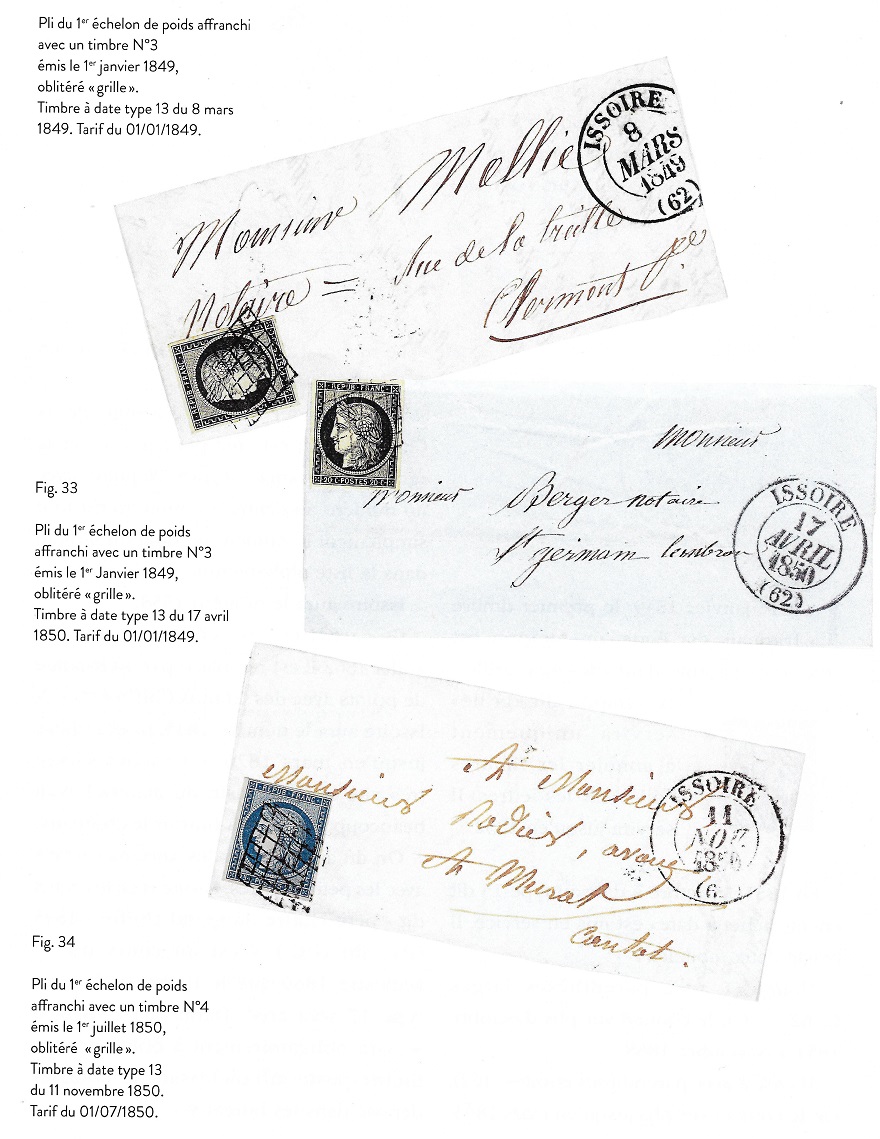 Pli du 1er échelon de poids affranchi
avec un timbre N°3
émis le 1er janvier 1849,
oblitéré « grille ».
Timbre à date type 13 du 8 mars
1849. Tarif du 01/01/1849.
ISSOIRE
8
MARS
1849
(62)
Monsieur Mollie
Notaire = rue de la treille
Clermont
REPUB FRANC
REPUB FRANC
20 C POSTES 20 C
Monsieur
Monsieur Berger notaire
St germain lembron
ISSOIRE
17
AVRIL
1850
(62)
Fig. 33
Pli du 1er échelon de poids
affranchi avec un timbre N°3
émis le 1er Janvier 1849,
oblitéré « grille ».
Timbre à date type 13 du 17 avril
1850. Tarif du 01/01/1849.
A Monsieur
Monsieur
Rodier, avoué
A Murat
Cantal.
REPUB FRANC
ISSOIRE
11
NOV.
1850
Fig. 34
Pli du 1er échelon de poids
affranchi avec un timbre N°4
émis le 1er juillet 1850,
oblitéré « grille ».
Timbre à date type 13
du 11 novembre 1850.
Tarif du 01/07/1850.